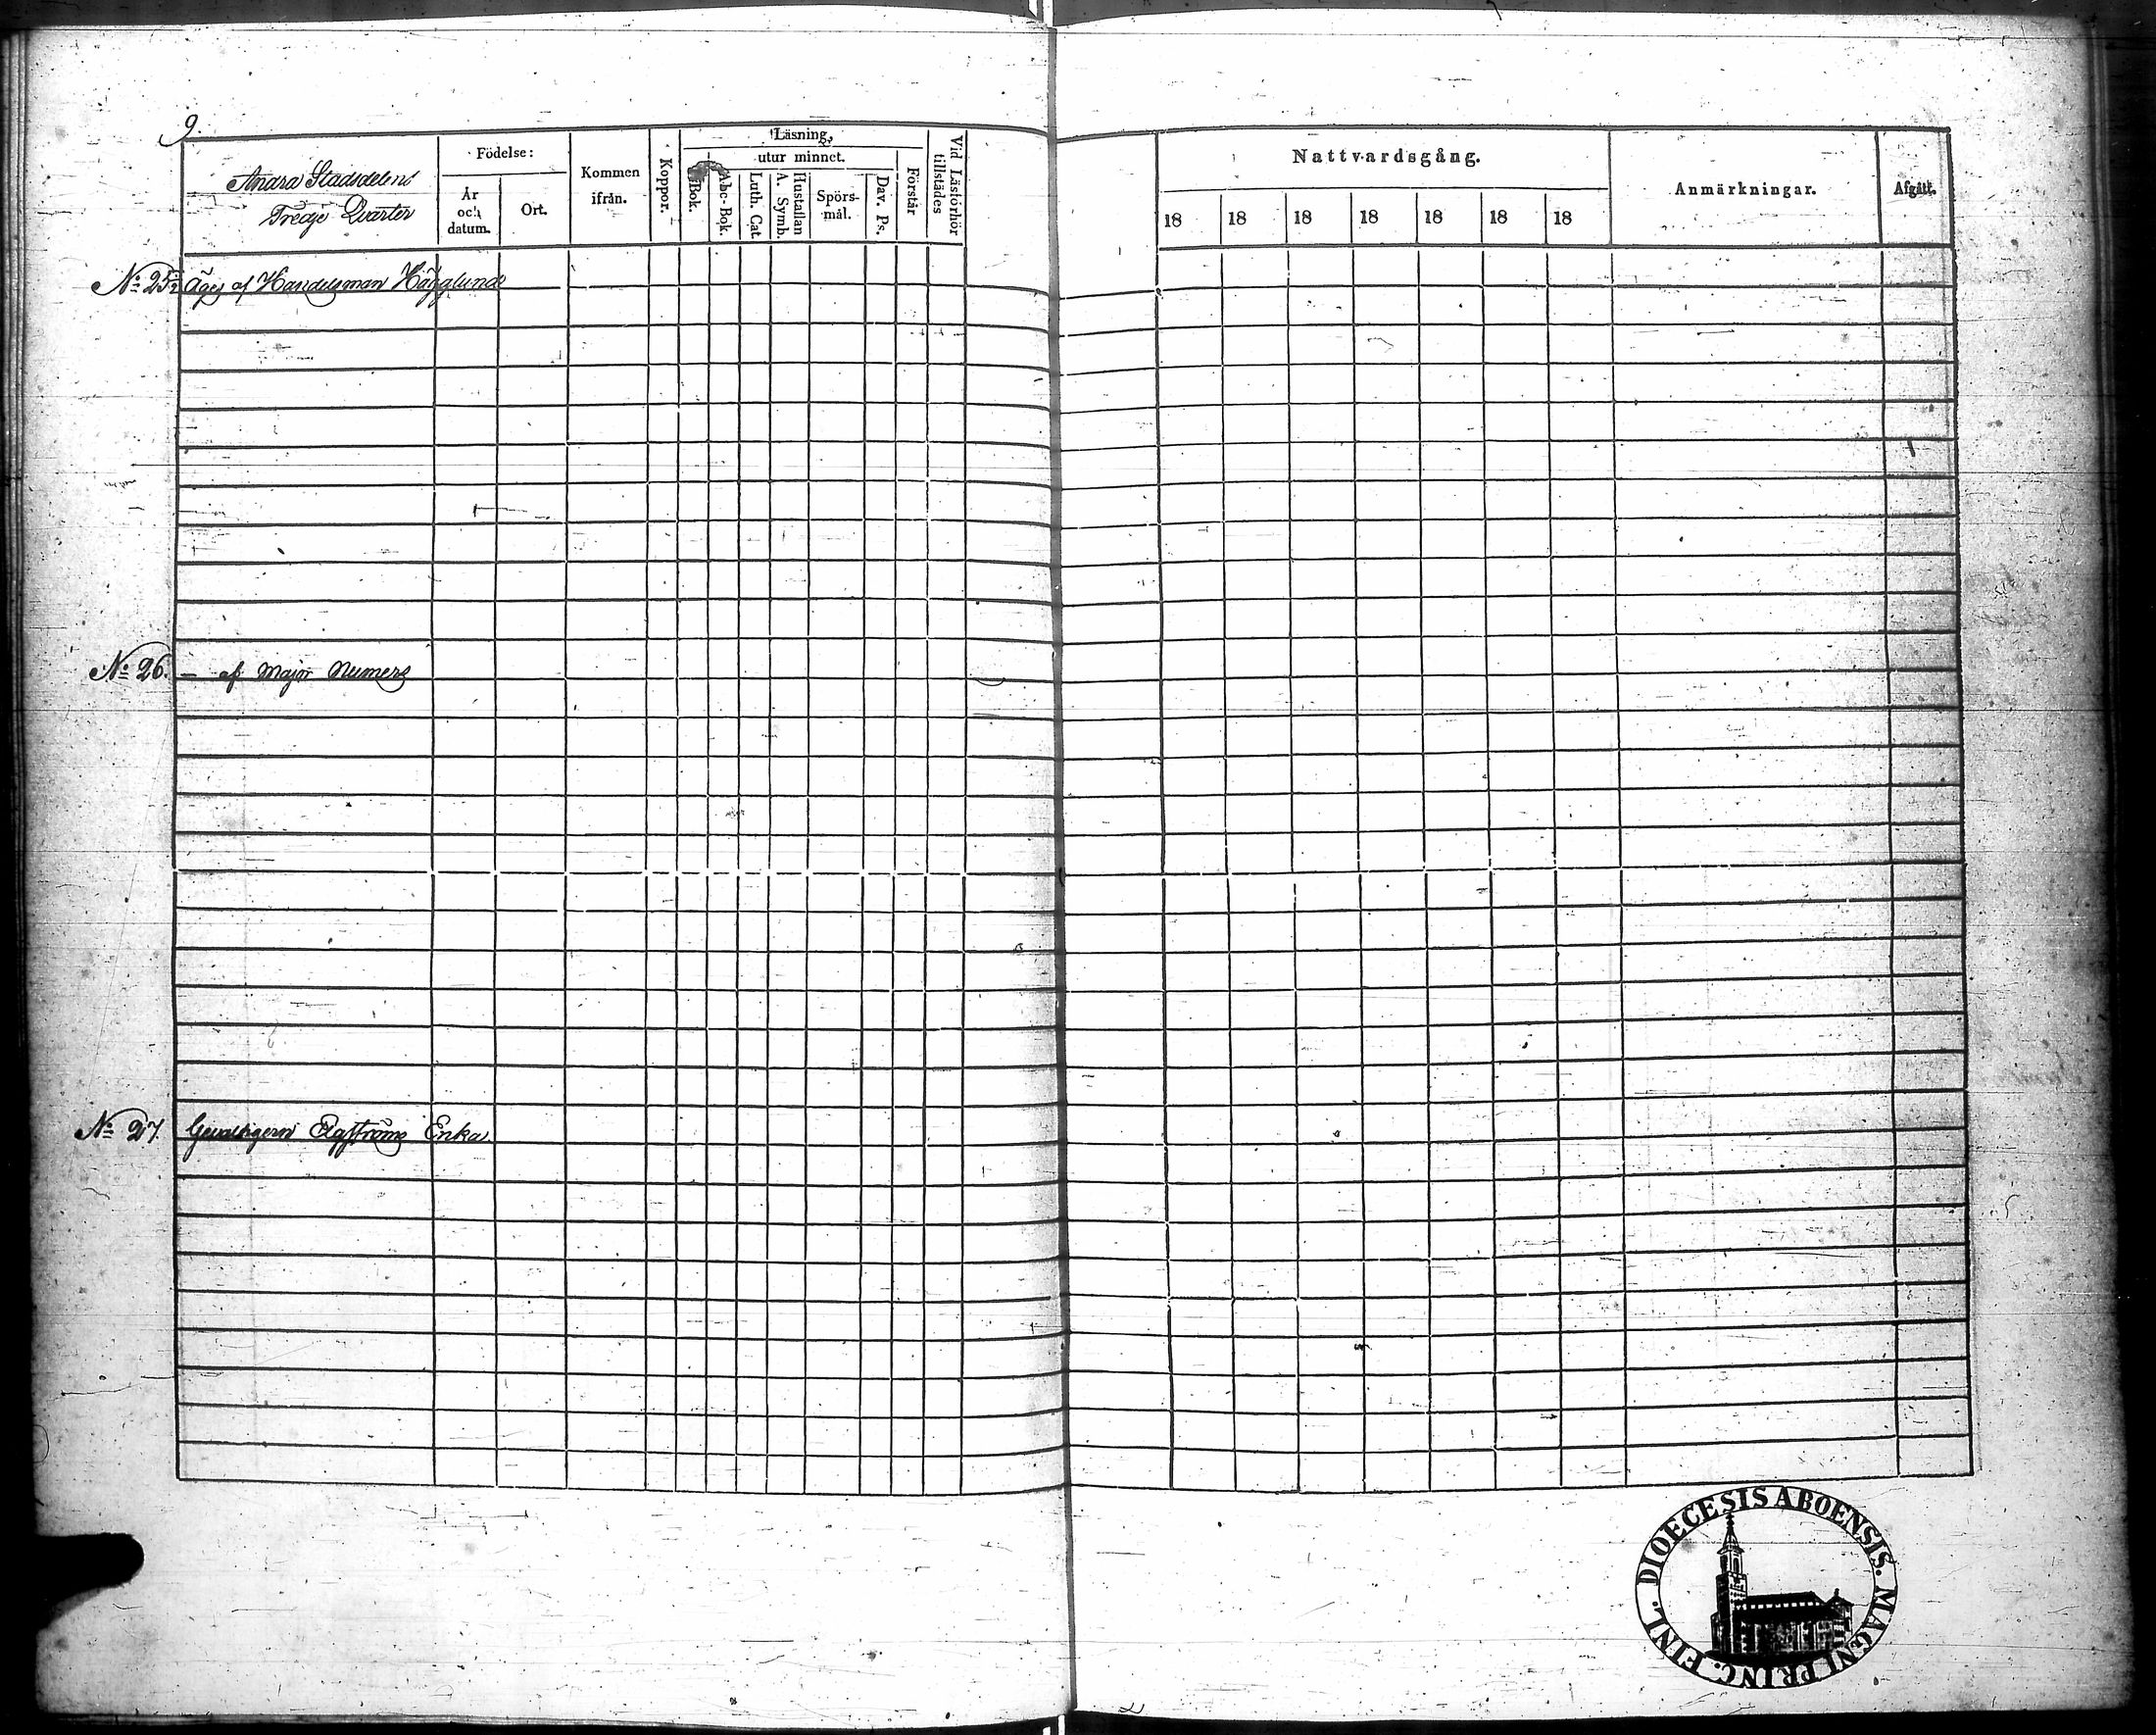 9.
Andra Stadsdelens
Tredje Qvarter
Födelse:
År och datum.
Ort.
Kommen ifrån.
Koppor.
Läsning,
utur minnet.
Bok.
Abc-Bok.
Luth. Cat.
A. Symb. Hustaflan
Spörs-mål.
Dav. Ps.
Förstår
Vid Läsförhör tillstädes
Nattvardsgång.
18 18 18 18 18 18 18
Anmärkningar.
Afgått.
No 25. Äges af Handelsman Hägglund
No 26. — af Major Numers
No 27. Enka
DIOECESIS ABOENSIS. MAGNI PRINC. FINL.